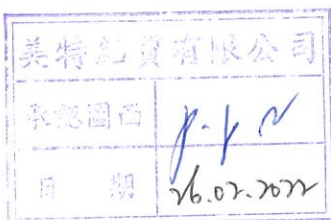 美特 有限公司
承認圖面
日 期 26.02.2022